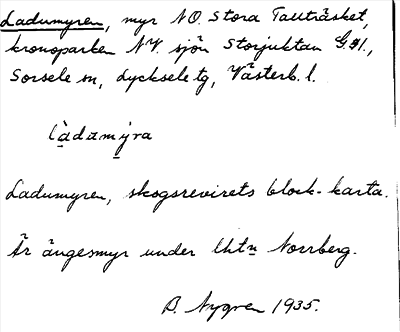 Ladumyren, myr NO. Stora Tallträsket,
kronoparken NV. sjön Storjuktan G.
Sorsele sn, Lycksele tg, Västerb. l.
làdamýra
Ladumyren, skogsrevirets block-karta.
Är ängesmyr under Norrberg.
B. Nygren 1935.